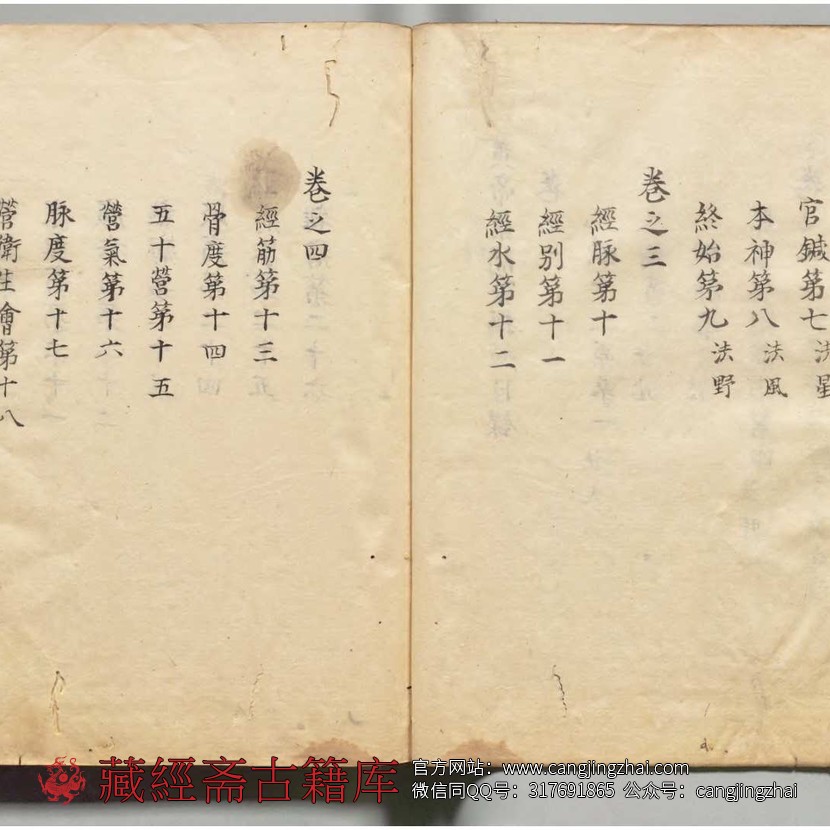 官鍼第七 法星
本神第八 法風
終始第九 法野
卷之三
經脉第十
經别第十一
經水第十二
卷之四
經筋第十三
骨度第十四
五十營第十五
營氣第十六
脉度第十七
營衛生會第十八
藏經斋古籍库
官方网站：www.cangjingzhai.com
微信同QQ号：317691865 公众号：cangjingzhai